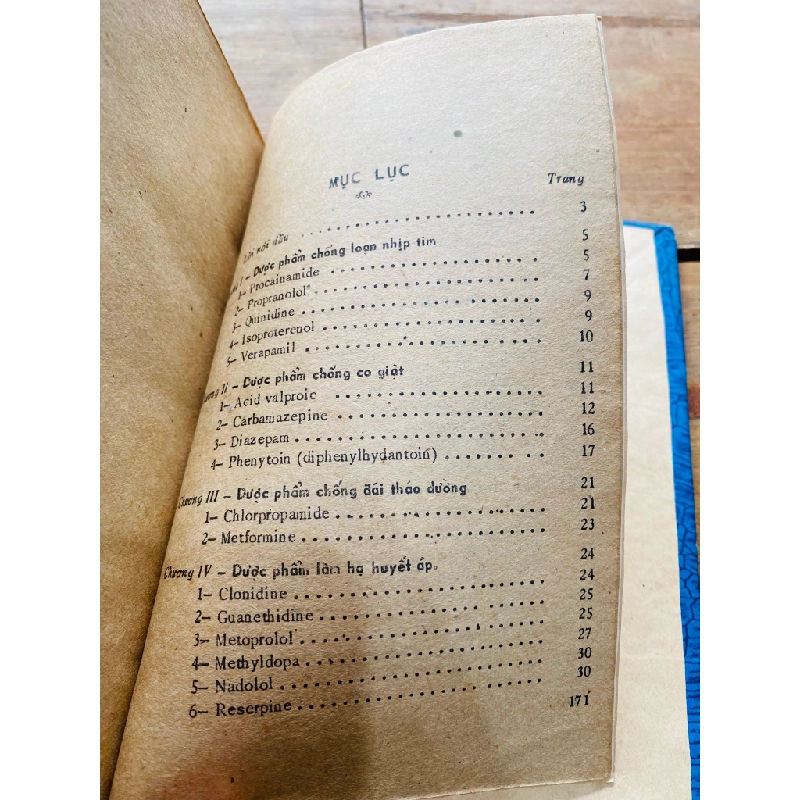 MỤC LỤC
Trang
Lời nói đầu ........................ 3
I – Dược phẩm chống loạn nhịp tim 5
1– Procainamide ........................ 5
2– Propranolol ........................ 7
3– Quinidine ........................ 9
4– Isoproterenol ........................ 9
5– Verapamil ........................ 10
Chương II – Dược phẩm chống co giật 11
1– Acid valproic ........................ 11
2– Carbamazepine ........................ 12
3– Diazepam ........................ 16
4– Phenytoin (diphenylhydantoin) ............ 17
Chương III – Dược phẩm chống đái tháo đường 21
1– Chlorpropamide ........................ 21
2– Metformine ........................ 23
Chương IV – Dược phẩm làm hạ huyết áp. 24
1– Clonidine ........................ 24
2– Guanethidine ........................ 25
3– Metoprolol ........................ 25
4– Methyldopa ........................ 27
5– Nadolol ........................ 30
6– Reserpine ........................ 30
171